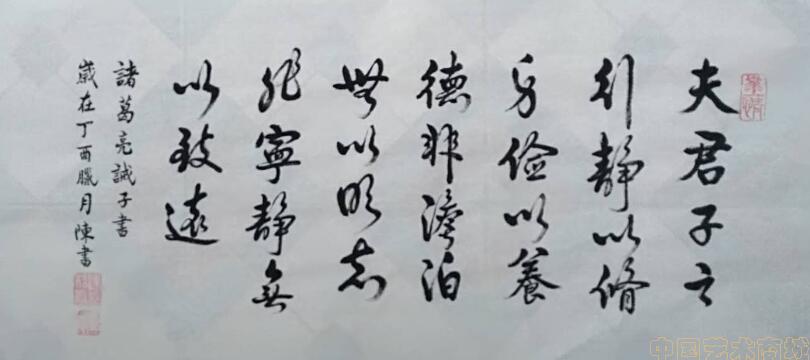 夫君子之
行靜以脩
身儉以養
德非澹泊
無以明志
非寧靜無
以致遠
諸葛亮誡子書
歲在丁酉臘月陳書
中国艺术商城